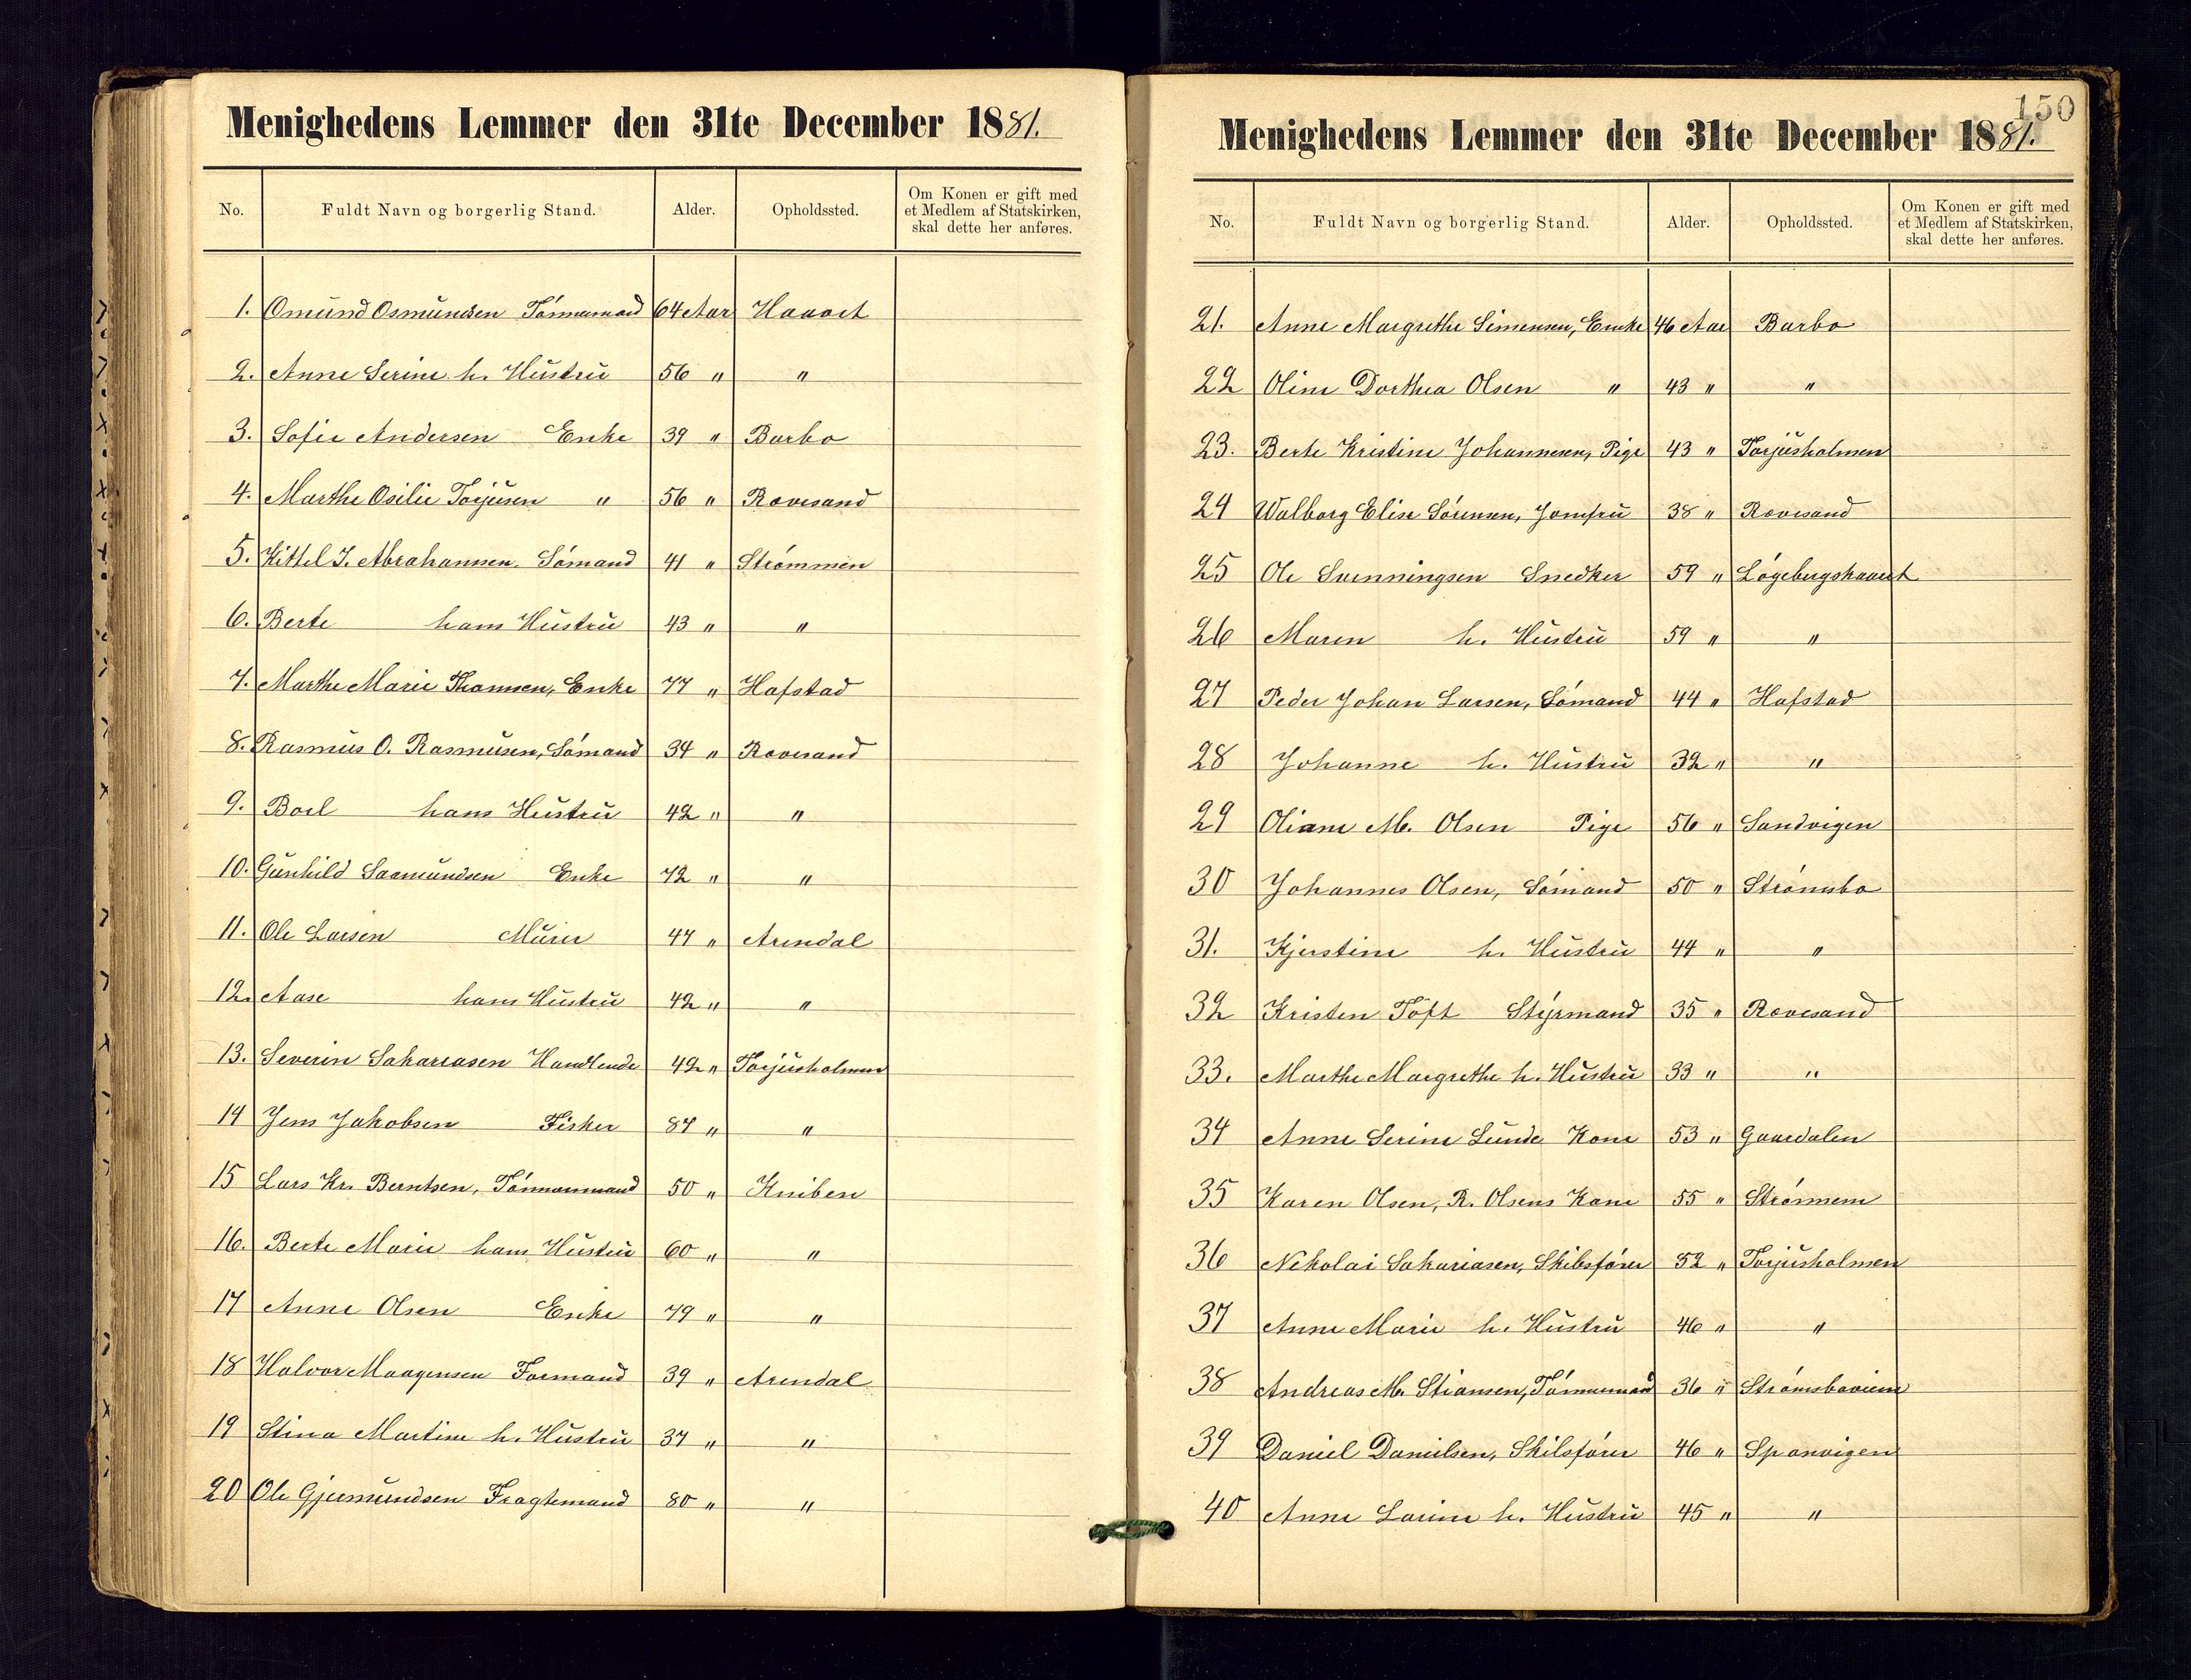 Menighedens Lemmer den 31te December 1881.
No. Fuldt Navn og borgerlig Stand. Alder. Opholdssted. Om Konen er gift med et Medlem af Statskirken, skal dette her anføres.
1. Omund Osmundsen Tømmermand 64 Aar Havort
2. Anne Serine h. Hustru 56 " "
3. Sofie Andersen Enke 39 " Barbo
4. Marthe Osilie Torjusen " 56 " Rævesand
5. Kittel J. Abrahamsen. Sømand 41 " Strømmen
6. Berte hans Hustru 43 " "
7. Marthe Marie Thomsen, Enke 77 " Hafstad
8. Rasmus O. Rasmusen, Sømand 34 " Rævesand
9. Boel hans Hustru 42 " "
10. Gunhild Saamundsen Enke 72 " "
11. Ole Larsen Murer 47 " Arendal
12. Aase hans Hustru 42 " "
13. Severin Sakariasen Handlende 42 " Torjusholmen
14 Jens Jakobsen Fisker 87 " "
15 Lars Kr. Berntsen, Tømmermand 50 " Kniben
16. Berte Marie hans Hustru 60 " "
17 Anne Olsen Enke 79 " "
18 Halvor Maagensen Formand 39 " Arendal
19 Stina Martine h. Hustru 37 " "
20 Ole Gjermundsen Fragtemand 80 " "
150
Menighedens Lemmer den 31te December 1881.
No. Fuldt Navn og borgerlig Stand. Alder. Opholdssted. Om Konen er gift med et Medlem af Statskirken, skal dette her anføres.
21. Anne Margrethe Simensen, Enke 46 Aar Barbo
22 Oline Dorthea Olsen " 43 " "
23. Berte Kristine Johannesen, Pige 43 " Torjusholmen
24 Walborg Elise Sørensen, Jomfru 38 " Rævesand
25 Ole Svenningsen Snedker 59 "
26 Maren h. Hustru 59 " "
27 Peder Johan Larsen, Sømand 44 " Hafstad
28 Johanne h. Hustru 32 " "
29 Oliane M. Olsen Pige 56 " Sandvigen
30 Johannes Olsen, Sømand 50 " Strømsbo
31. Kjerstine h. Hustru 44 " "
32 Kristen Toft Styrmand 35 " Rævesand
33. Marthe Margrethe h. Hustru 33 " "
34 Anne Serine Lunde Kone 53 " Gaardalen
35 Karen Olsen, R. Olsens Kone 55 " Strømmem
36 Nikolai Sakariasen, Skibsfører 52 " Torjusholmen
37 Anne Marie h. Hustru 46 " "
38 Andreas M. Stiansen, Tømmermand 36 "
39 Daniel Danielsen, Skibsfører 46 " Spanvigen
40 Anne Larine h. Hustru 45 " "